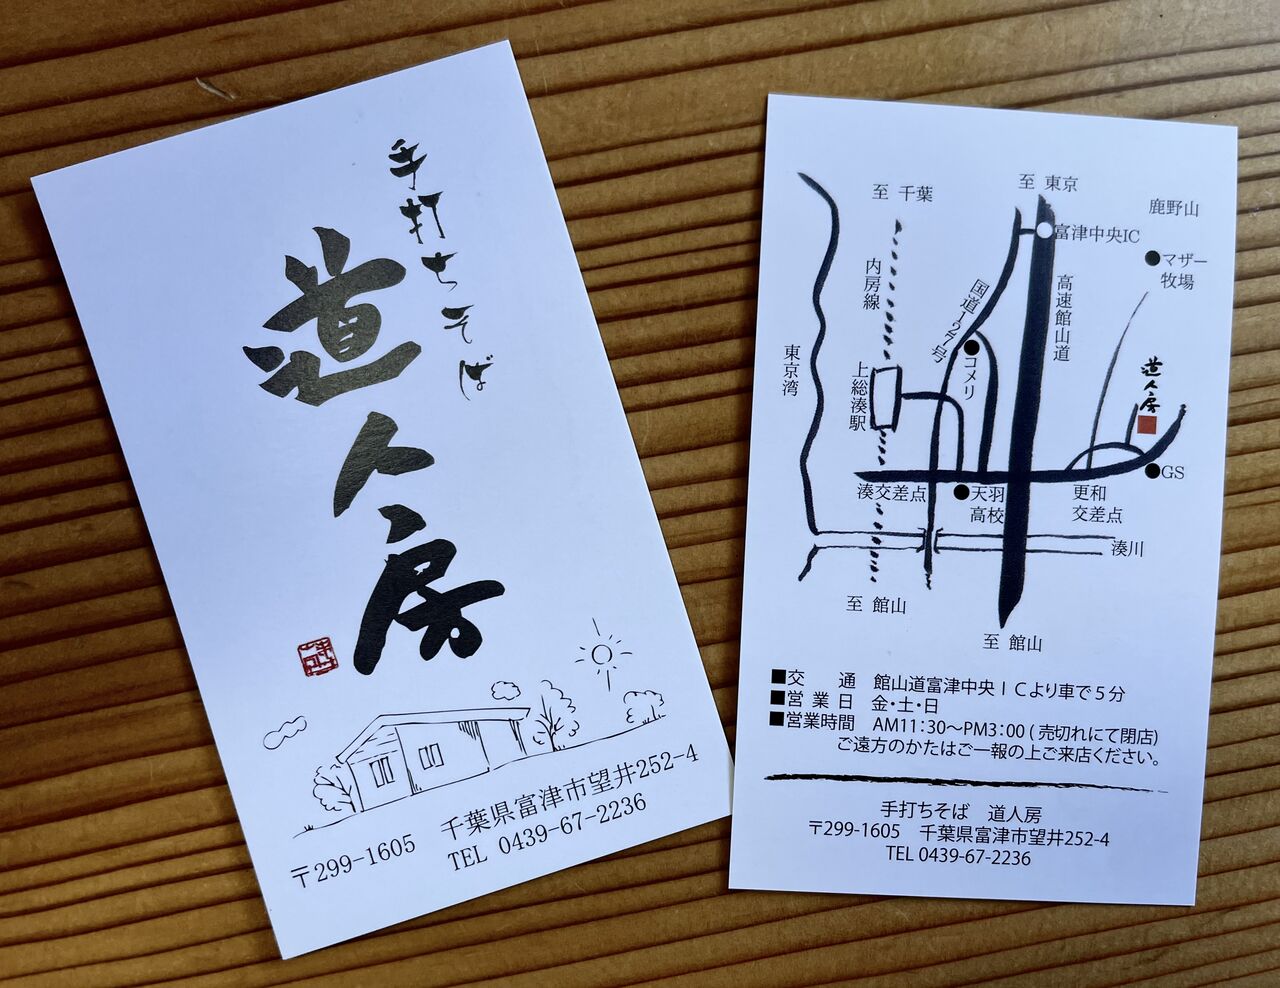 手打ちそば
道人房
〒299-1605 千葉県富津市望井252-4
TEL 0439-67-2236
至 千葉
至 東京
鹿野山
富津中央IC
マザー
牧場
内房線
国道127号
高速館山道
東京湾
上総湊駅
コメリ
道人房
GS
湊交差点
天羽
高校
更和
交差点
湊川
至 館山
至 館山
■交 通 館山道富津中央ICより車で5分
■営業日 金・土・日
■営業時間 AM11:30〜PM3:00(売切れにて閉店)
ご遠方のかたはご一報の上ご来店ください。
手打ちそば 道人房
〒299-1605 千葉県富津市望井252-4
TEL 0439-67-2236